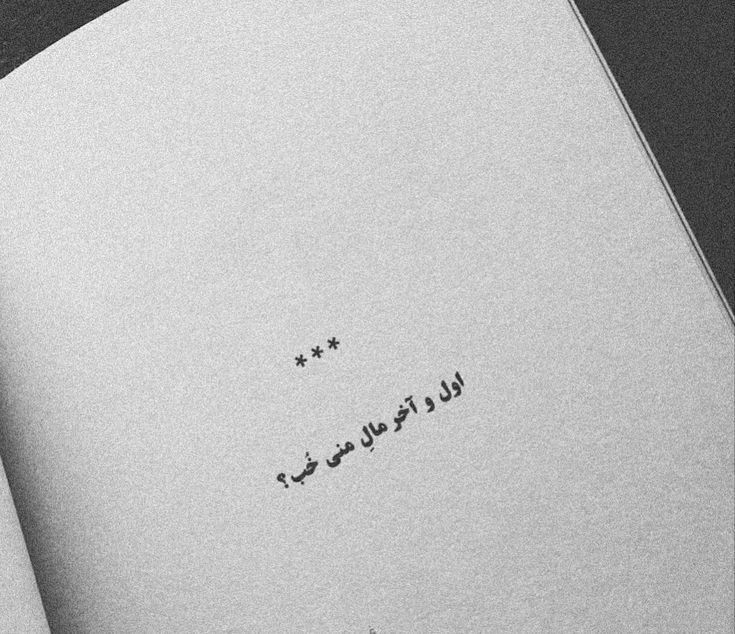 ***
اول و آخر مالِ منی خُب؟